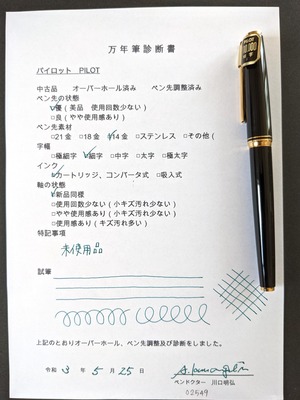 万年筆診断書
パイロット PILOT
中古品 オーバーホール済み ペン先調整済み
ペン先の状態
☑優(美品 使用回数少ない)
□良(やや使用感あり)
ペン先素材
□21金 □18金 ☑14金 □ステンレス □その他(
字幅
□極細字 ☑細字 □中字 □太字 □極太字
インク
☑カートリッジ、コンバータ式 □吸入式
軸の状態
☑新品同様
□使用回数少ない(小キズ汚れ少ない)
□やや使用感あり(小キズ汚れ少ない)
□使用感あり(キズ汚れ多い)
特記事項
未使用品
試筆
上記のとおりオーバーホール、ペン先調整及び診断をしました。
令和 3 年 5 月 25 日
ペンドクター 川口明弘
02549